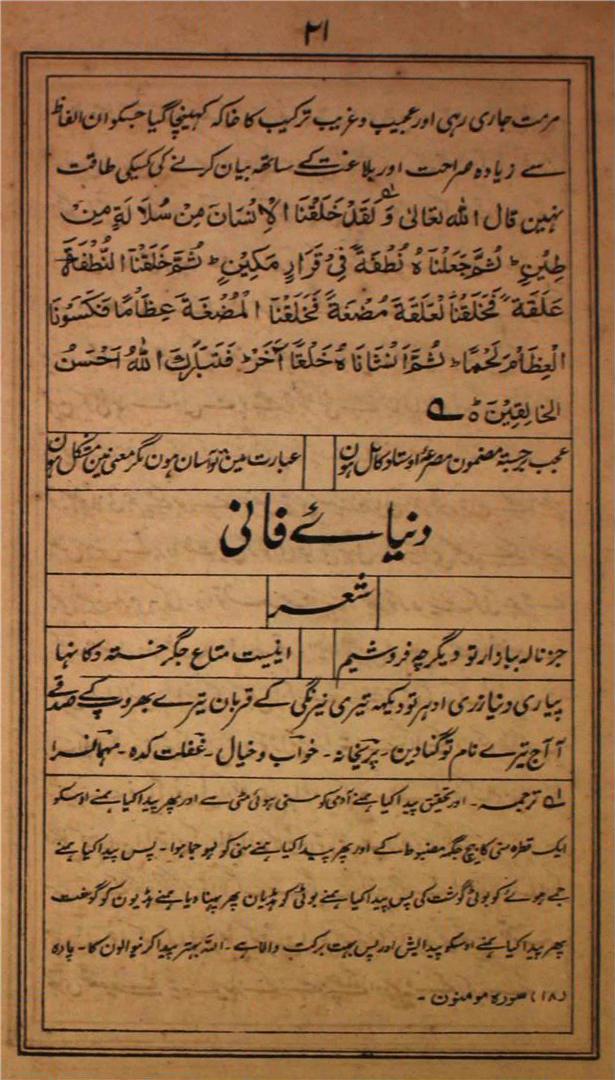 ۲۱
مرمت جاری رہی اور عجیب و غریب ترکیب کا خاکہ کہینچا گیا جسکو ان الفاظ
سے زیادہ صراحت اور بلاغت کے ساتھ بیان کرنے کی کسیکی طاقت
نہین قال اللہ تعالیٰ وَ لَقَدْ خَلَقْنَا الْاِنْسَانَ مِنْ سُلَالَةٍ مِنْ
طِیْنٍ ؕ ثُمَّ جَعَلْنَاهُ نُطْفَةً فِیْ قَرَارٍ مَکِیْنٍ ؕ ثُمَّ خَلَقْنَا النُّطْفَةَ
عَلَقَةً فَخَلَقْنَا الْعَلَقَةَ مُضْغَةً فَخَلَقْنَا الْمُضْغَةَ عِظَامًا فَکَسَوْنَا
الْعِظَامَ لَحْمًا ؕ ثُمَّ اَنْشَانَاهُ خَلْقًا آخَرَ ؕ فَتَبَارَكَ اللهُ اَحْسَنُ
الخَالِقِیْنَ ہ ؕ
عجب برجستہ مضمون مصرعۂ اوستاد کامل ہون
عبارت مین تو آسان ہون مگر معنی مین مشکل ہون
دنیائے فانی
شعر
جز نالہ ببازار تو دیگر چہ فروشیم
اینست متاع جگر خستہ دکانہا
پیاری دنیا زری ادہر تو دیکہہ تیری نیرنگی کے قربان تیرے بھروپ کے صدقے
آ آج تیرے نام تو گنا دین ۔ پریخانہ ۔ خواب و خیال ۔ غفلت کدہ ۔ مہمانسرا
لہ ترجمہ ۔ اور تحقیق پیدا کیا ہمنے آدمی کو سنی ہوئی مٹی سے اور پھر پیدا کیا ہمنے اوسکو
ایک قطرہ منی کا بیچ جگہ مضبوط کے اور پھر پیدا کیا ہمنے منی کو لہو جما ہوا ۔ پس پیدا کیا ہمنے
جمے ہوے کو بوٹی گوشت کی پس پیدا کیا ہمنے بوٹی کو ہڈیان پھر پہنا دیا ہمنے ہڈیون کو گوشت
پھر پیدا کیا ہمنے اوسکو پیدایش اور پس بہت برکت والا ہے ۔ اللہ بہتر پیدا کرنیوالون کا ۔ پارہ
(۱۸) سورہ مومنون ۔